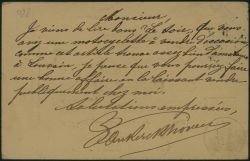 Monsieur
Je viens de lire dans Le Soir, que vous
avez une motocyclette à vendre d'occasion
comme cet article trouve assez bien d'amateurs
à Louvain, je pense que vous pourriez faire
une bonne affaire en la laissant vendre
publiquement chez moi.
Salutations empressées,